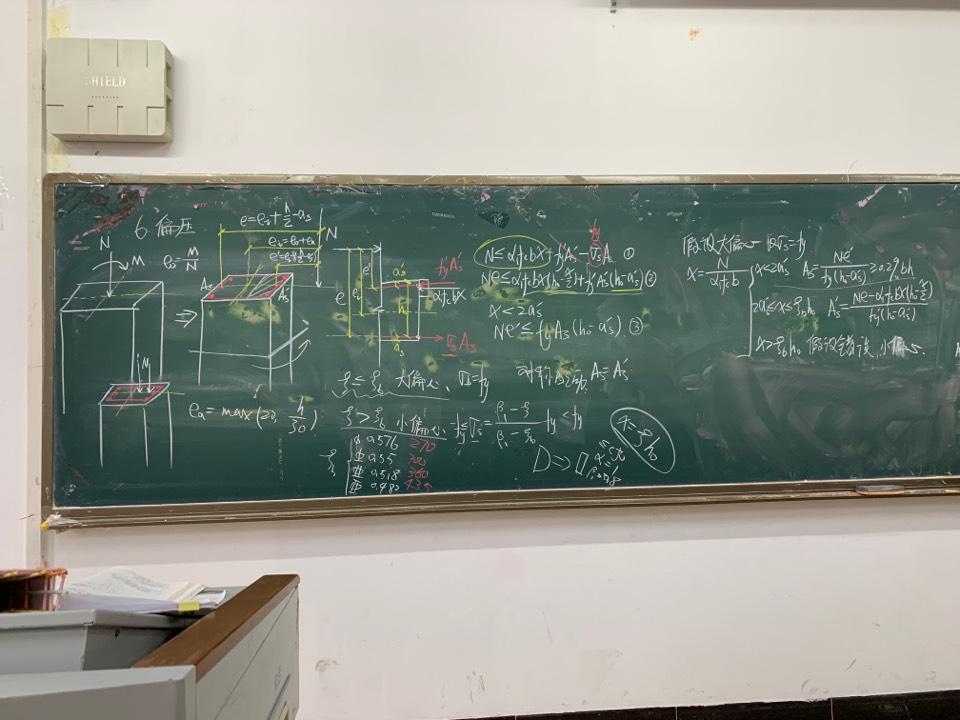 SHIELD
6 偏压
e=e₀+h/2-aₛ
N
N
M
e₀=M/N
M
⇒
e
eₐ=max(20, h/30)
fy'Aₛ'
α₁fcbx
aₛ'
aₛ
σₛAₛ
N≤α₁fcbx+fy'Aₛ'-σₛAₛ ①
Ne≤α₁fcbx(h₀-x/2)+fy'Aₛ'(h₀-aₛ') ②
x<2aₛ'
Ne'≤fyAₛ(h₀-aₛ') ③
ξ≤ξb 大偏心, σₛ=fy
Aₛ=Aₛ'
ξ>ξb 小偏心 -fy'≤σₛ=(β₁-ξ)/(β₁-ξb) fy<fy
ξb
0.576 270
0.55 300
0.518 360
0.482 435
D⇒
假设大偏心 σₛ=fy
x=N/(α₁fcb)
x<2aₛ' Aₛ=Ne'/(fy(h₀-aₛ'))≥0.2%bh
2aₛ'≤x≤ξbh₀ Aₛ'=(Ne-α₁fcbx(h₀-x/2))/(fy'(h₀-aₛ'))
x>ξbh₀ 假设错误,小偏心.